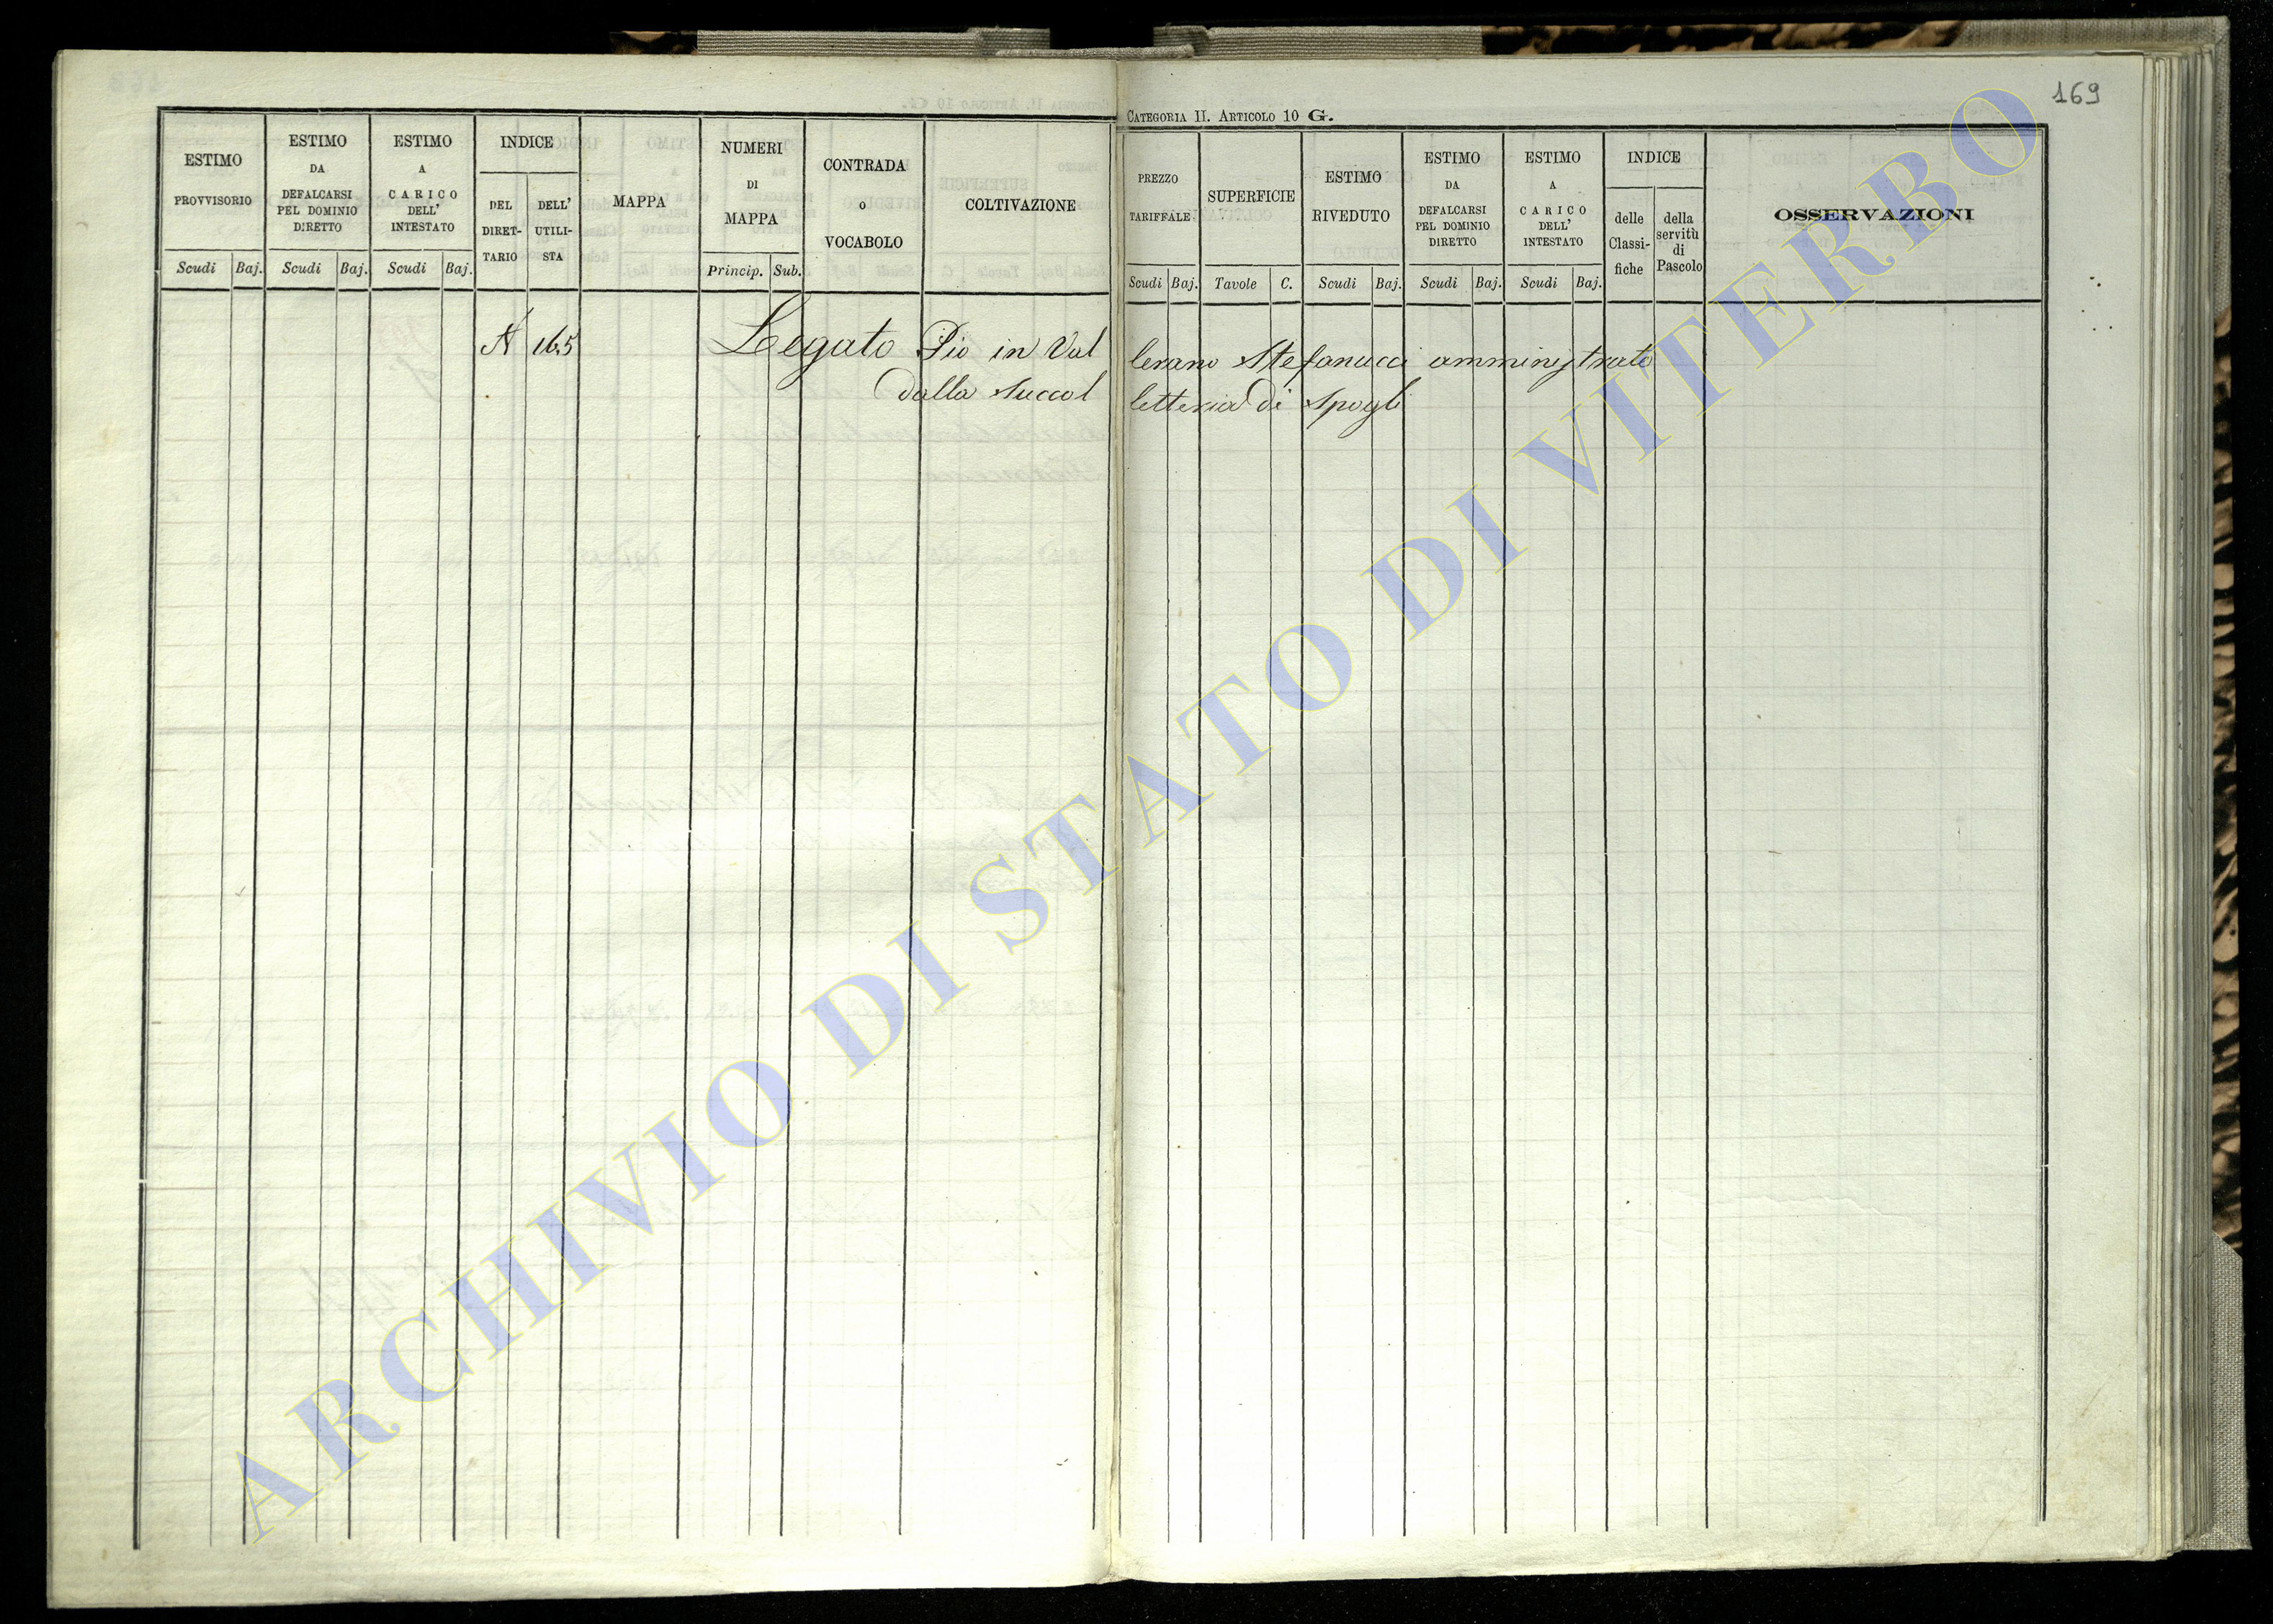 169
CATEGORIA II. ARTICOLO 10 G.
ESTIMO PROVVISORIO
ESTIMO DA DEFALCARSI PEL DOMINIO DIRETTO
ESTIMO A CARICO DELL' INTESTATO
INDICE
DEL DIRETTARIO
DELL' UTILISTA
MAPPA
NUMERI DI MAPPA
CONTRADA O VOCABOLO
COLTIVAZIONE
Scudi Baj. Scudi Baj. Scudi Baj. Princip. Sub.
PREZZO TARIFFALE
SUPERFICIE
ESTIMO RIVEDUTO
ESTIMO DA DEFALCARSI PEL DOMINIO DIRETTO
ESTIMO A CARICO DELL' INTESTATO
INDICE
delle Classifiche
della servitù di Pascolo
OSSERVAZIONI
Scudi Baj. Tavole C. Scudi Baj. Scudi Baj. Scudi Baj.
N 165 Legato Pio in Vallerano Stefanucci amministrato
dalla Succolletteria di Spogli
ARCHIVIO DI STATO DI VITERBO